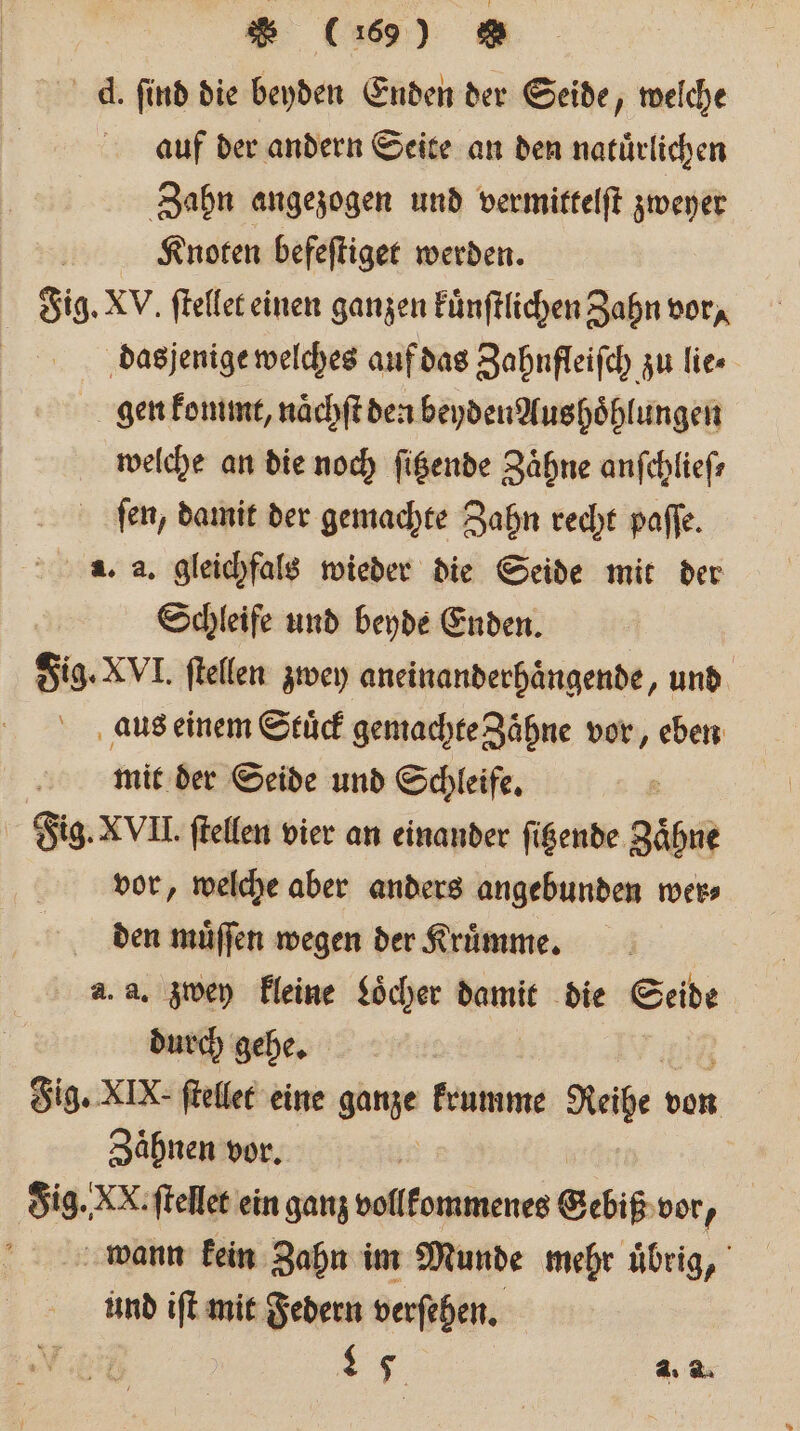 ❀ (169) ❀
d. ſind die beyden Enden der Seide, welche
auf der andern Seite an den natuͤrlichen
Zahn angezogen und vermittelſt zweyer
Knoten befeſtiget werden.
Fig. XV. ſtellet einen ganzen kuͤnſtlichen Zahn vor,
dasjenige welches auf das Zahnfleiſch zu lie-
gen kommt, naͤchſt den beyden Aushoͤhlungen
welche an die noch ſitzende Zaͤhne anſchlieſ-
ſen, damit der gemachte Zahn recht paſſe.
a. a. gleichfals wieder die Seide mit der
Schleife und beyde Enden.
Fig. XVI. ſtellen zwey aneinanderhaͤngende, und
aus einem Stuͤck gemachte Zaͤhne vor, eben
mit der Seide und Schleife.
Fig. XVII. ſtellen vier an einander ſitzende Zaͤhne
vor, welche aber anders angebunden wer-
den muͤſſen wegen der Kruͤmme.
a. a. zwey kleine Loͤcher damit die Seide
durch gehe.
Fig. XIX- ſtellet eine ganze krumme Reihe von
Zaͤhnen vor.
Fig. XX. ſtellet ein ganz vollkommenes Gebiß vor,
wann kein Zahn im Munde mehr uͤbrig,
und iſt mit Federn verſehen.
L 5 a. a.